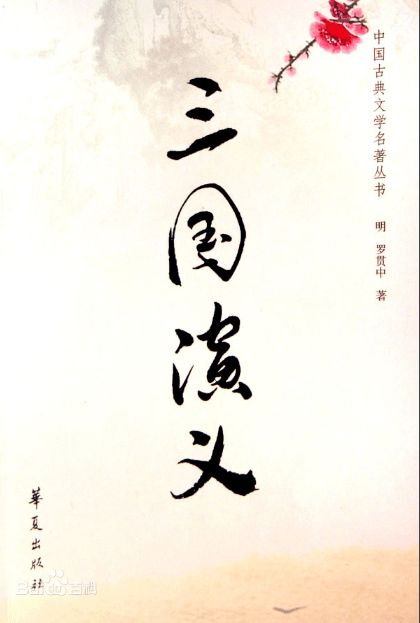 中国古典文学名著丛书 明 罗贯中 著
三国演义
華夏出版社
Bai百科